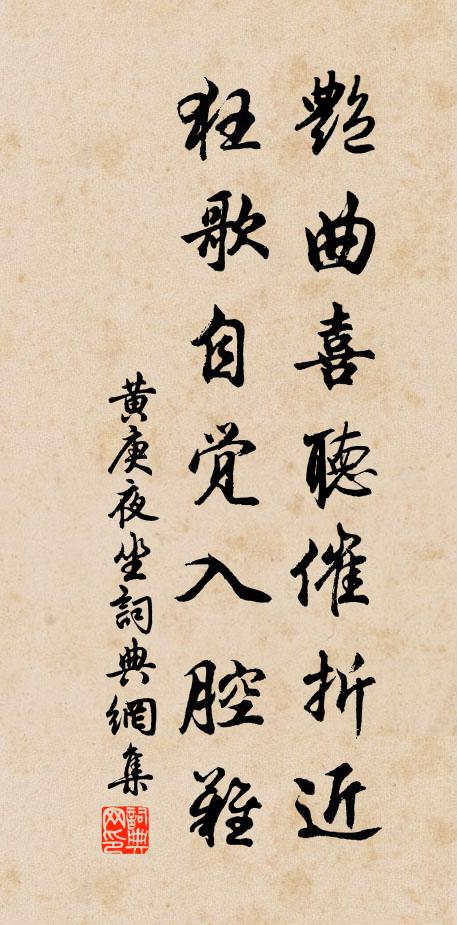 艷曲喜聽催折近
狂歌自覺入腔難
黄庚夜坐詞典網集
詞典网印